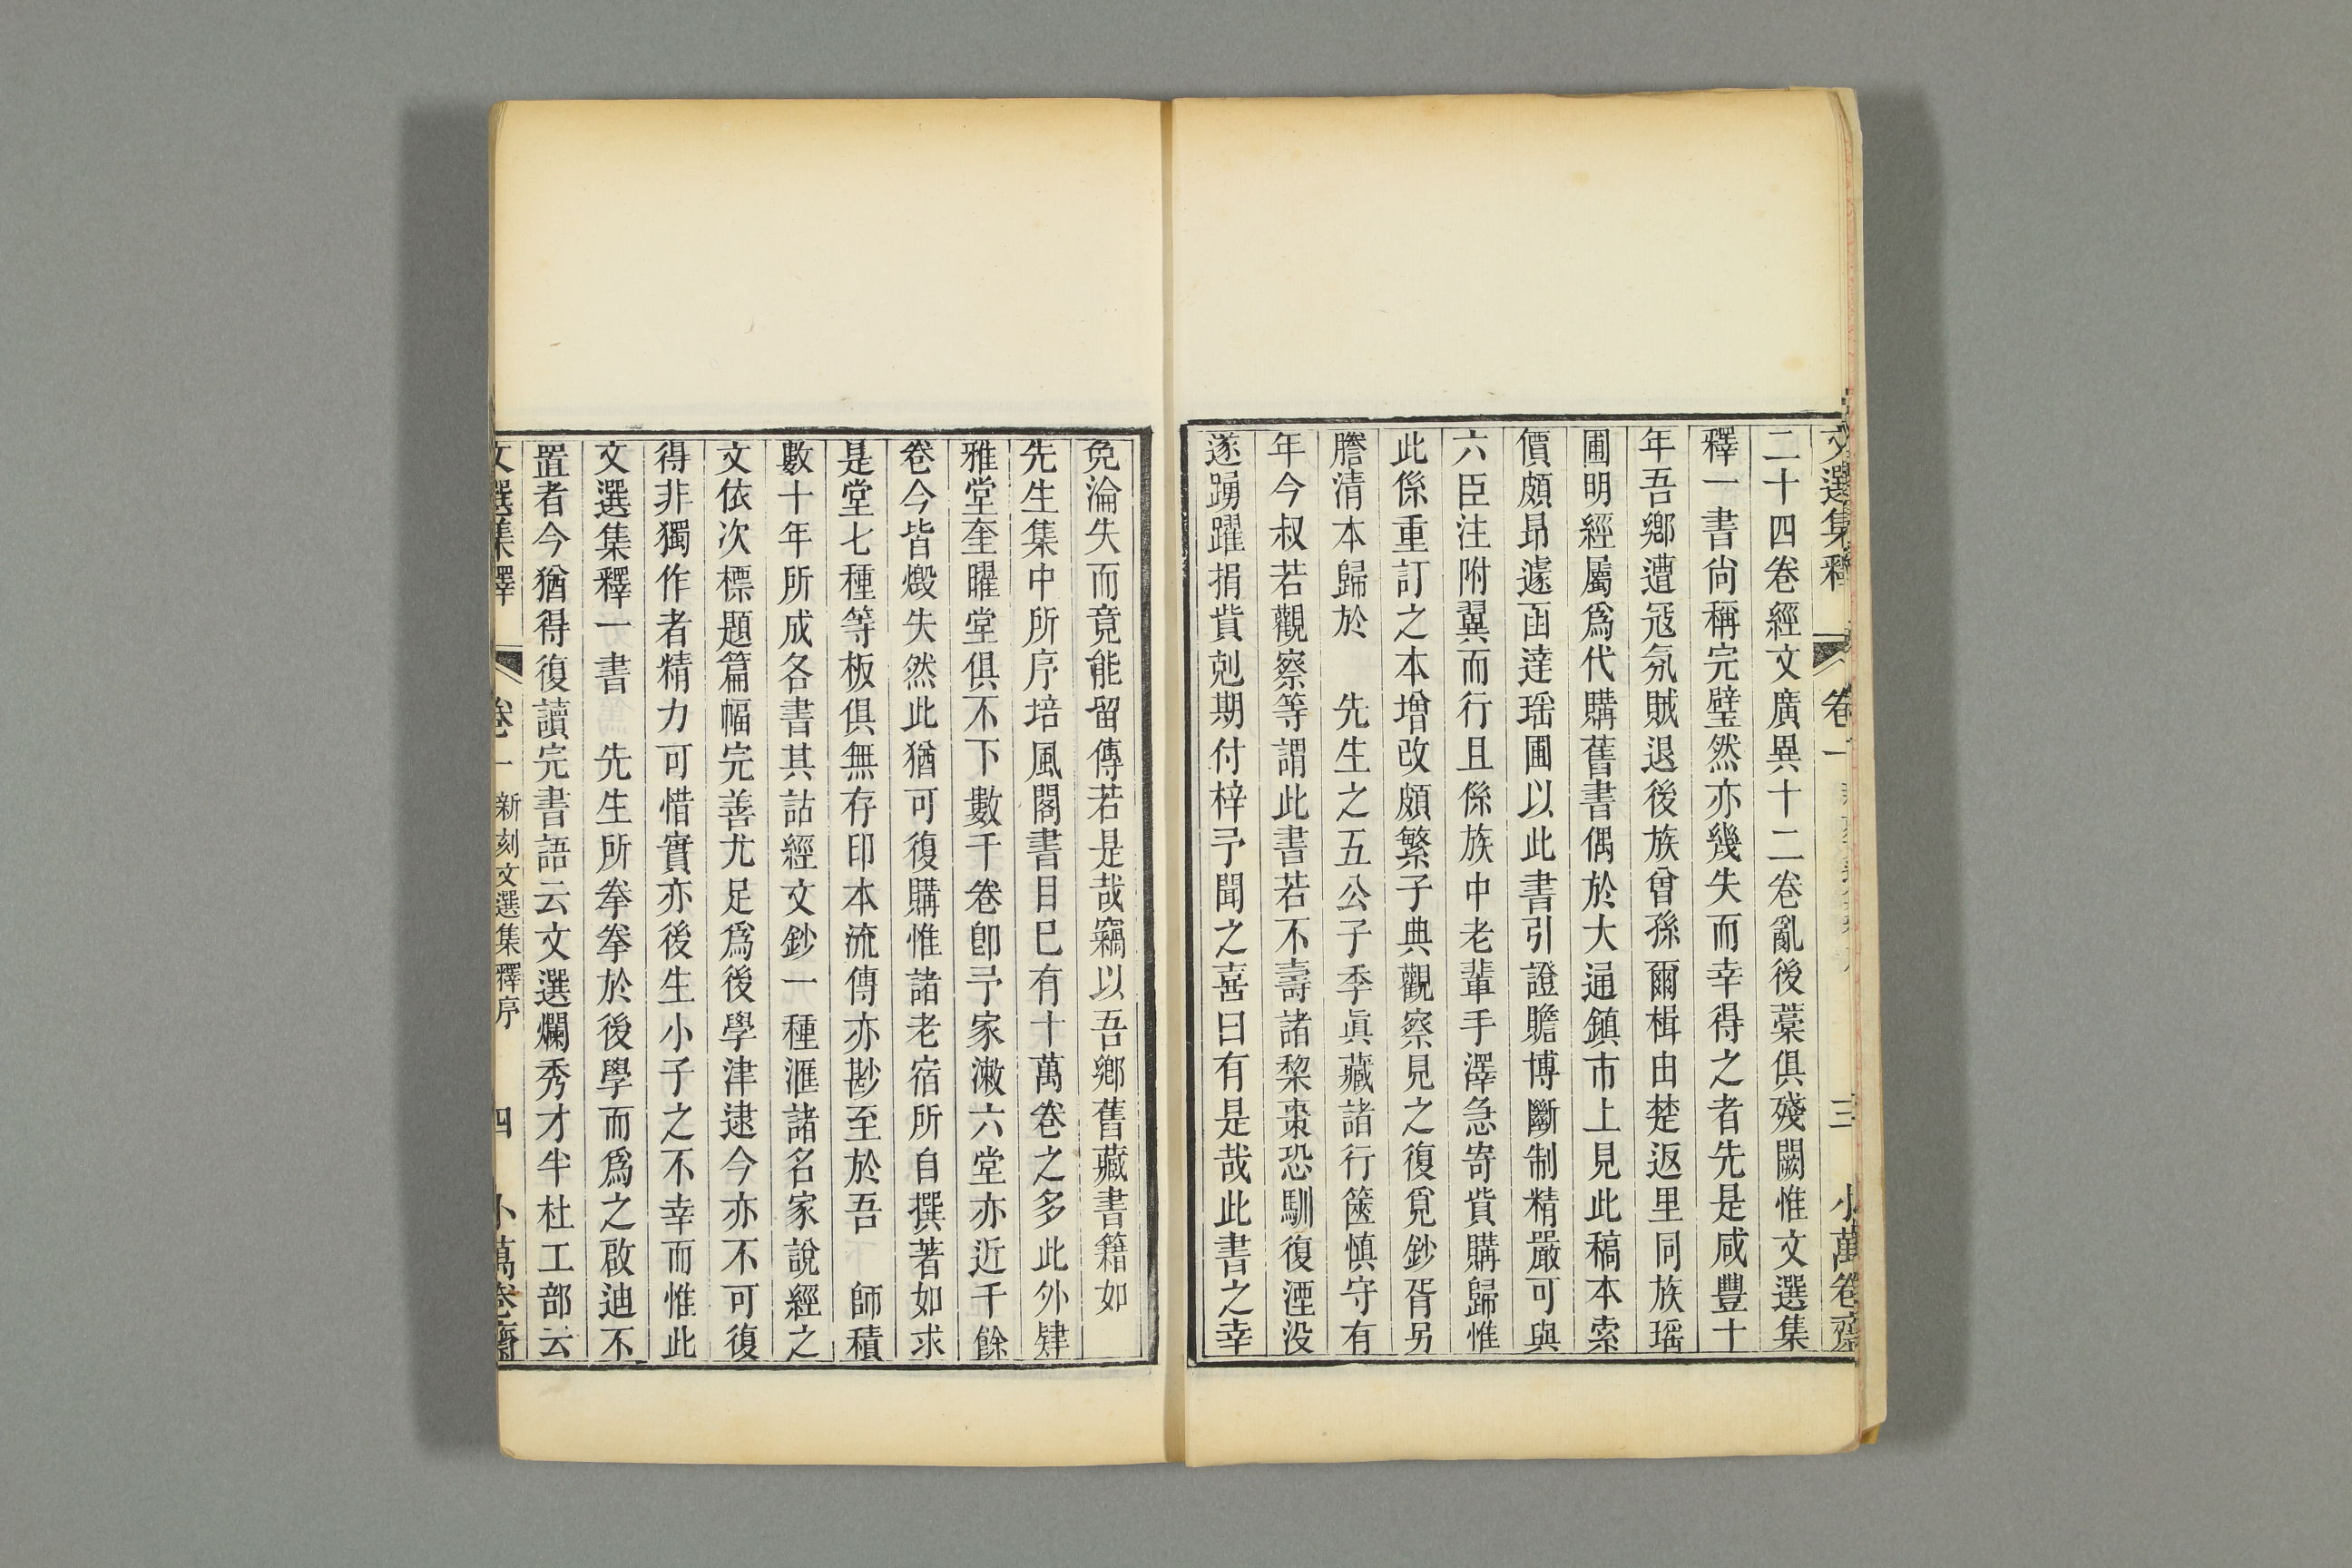 文選集釋 卷一 三 小萬卷齋
二十四卷經文廣異十二卷亂後藁俱殘闕惟文選集
釋一書尙稱完璧然亦幾失而幸得之者先是咸豐十
年吾鄉遭冦氛賊退後族曾孫爾楫由楚返里同族瑶
圃明經屬爲代購舊書偶於大通鎮市上見此稿本索
價頗昻遽函達瑶圃以此書引證贍博斷制精嚴可與
六臣注附翼而行且係族中老輩手澤急寄貲購歸惟
此係重訂之本增改頗繁子典觀察見之復覓鈔胥另
謄清本歸於　先生之五公子季眞藏諸行篋慎守有
年今叔若觀察等謂此書若不壽諸棃棗恐馴復湮没
遂踴躍捐貲剋期付梓予聞之喜曰有是哉此書之幸
免淪失而竟能留傳若是哉竊以吾鄉舊藏書籍如
先生集中所序培風閣書目已有十萬卷之多此外肄
雅堂奎曜堂俱不下數千卷卽予家漱六堂亦近千餘
卷今皆燬失然此猶可復購惟諸老宿所自撰著如求
是堂七種等板俱無存印本流傳亦尠至於吾　師積
數十年所成各書其詁經文鈔一種滙諸名家說經之
文依次標題篇幅完善尤足爲後學津逮今亦不可復
得非獨作者精力可惜實亦後生小子之不幸而惟此
文選集釋一書　先生所拳拳於後學而爲之啟迪不
置者今猶得復讀完書語云文選爛秀才半杜工部云
文選集釋 卷一 新刻文選集釋序 四 小萬卷齋